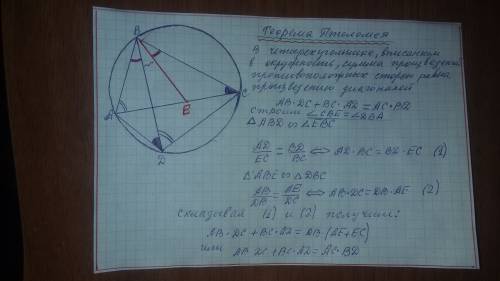 Теорема Птоломея
В четырехугольнике, вписанном
в окружность, сумма произведений
противоположных сторон равна
произведению диагоналей
AB·DC+BC·AD=AC·BD
строим ∠CBE=∠DBA
△ABD ∾ △EBC
AD/EC = BD/BC ⇔ AD·BC=BD·EC (1)
△ABE ∾ △DBC
AB/DB = AE/DC ⇔ AB·DC=DB·AE (2)
Складывая (1) и (2) получим:
AB·DC+BC·AD=DB(AE+EC)
или AB·DC+BC·AD=AC·BD
B
A
E
C
D